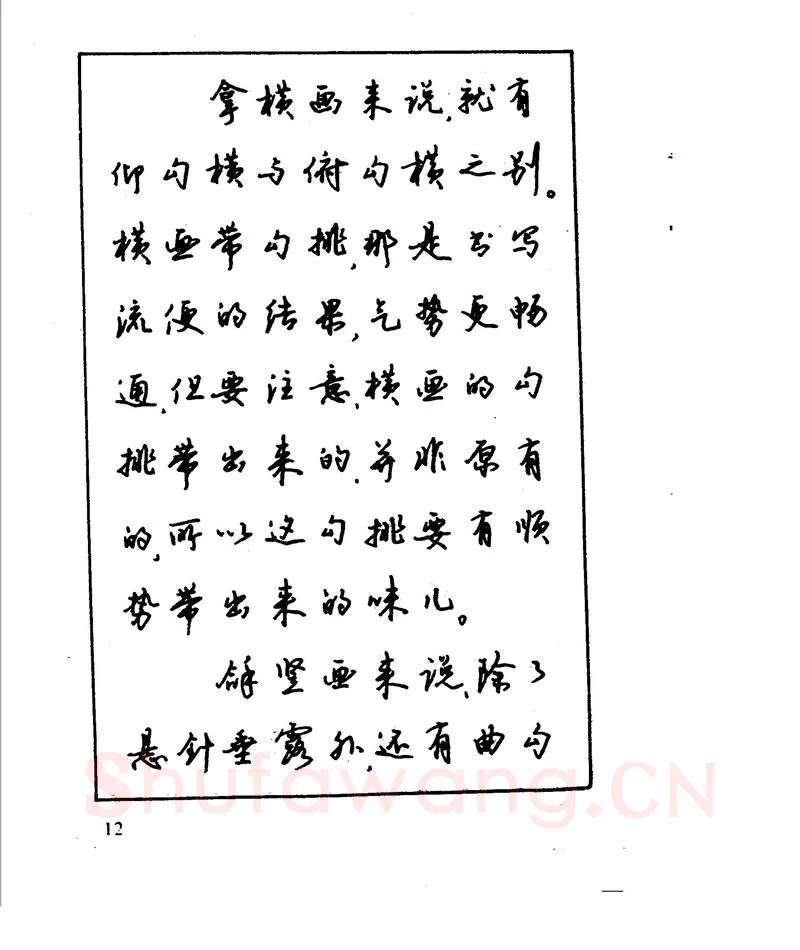 拿横画来说,就有
仰勾横与俯勾横之别。
横画带勾挑,那是书写
流便的结果,气势更畅
通,但要注意,横画的勾
挑带出来的,并非原有
的,所以这勾挑要有顺
势带出来的味儿。
竖画来说,除了
悬针垂露外,还有曲勾
Shufawang.CN
12